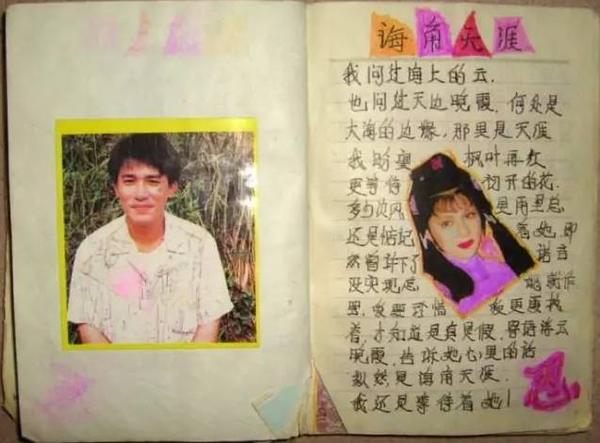 海角天涯
我问过海上的云,
也问过天边晚霞, 何处是
大海的边缘, 那里是天涯
我盼望 枫叶再红
更等待 初开的花.
多少次风 里雨里总
还是惦记 着她, 即
然曾许下了 诺言
没实现怎 能就作
罢, 我要珍惜 我更要找
着, 才知道是真是假, 寄语浮云
晚霞, 告诉她心里的话
纵然是海角天涯.
我还是等待着她!
忍